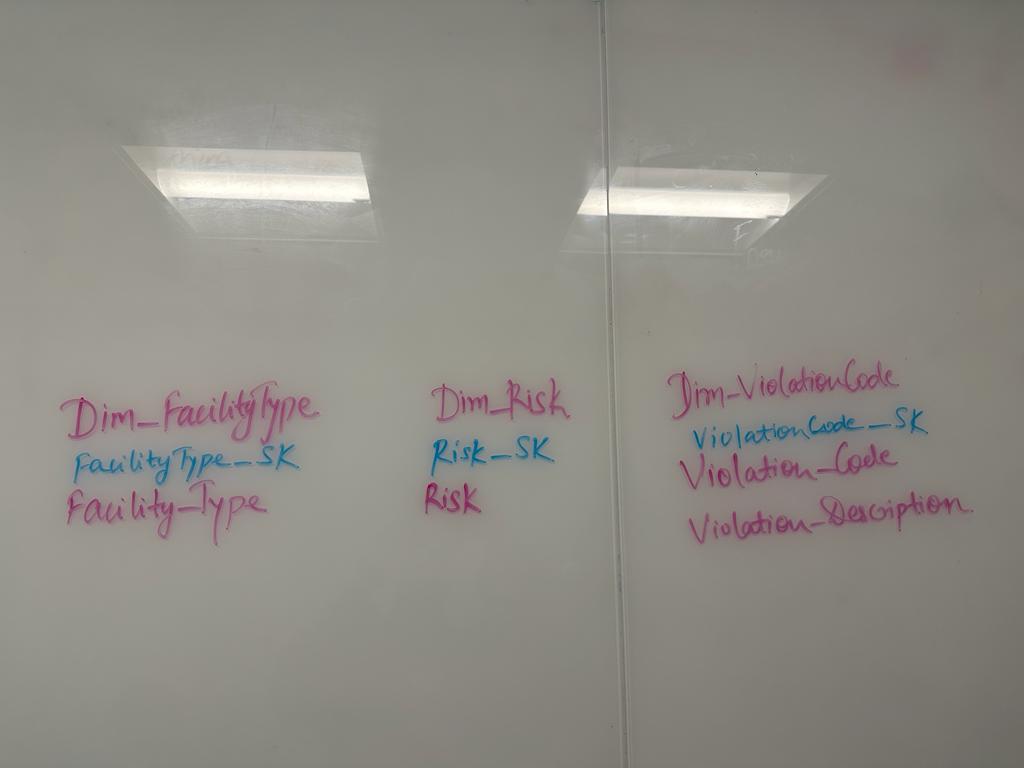 Dim_FacilityType
FacilityType_SK
Facility_Type
Dim_Risk
Risk_SK
Risk
Dim_ViolationCode
ViolationCode_SK
Violation_Code
Violation_Description